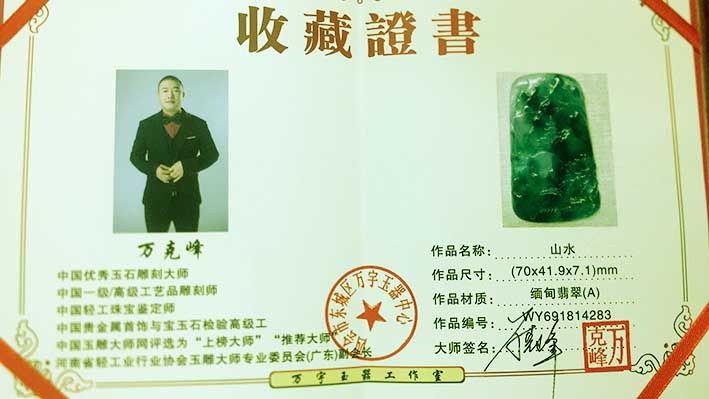 收藏證書
万克峰
中国优秀玉石雕刻大师
中国一级/高级工艺品雕刻师
中国轻工珠宝鉴定师
中国贵金属首饰与宝玉石检验高级工
中国玉雕大师网评选为“上榜大师”“推荐大师”
河南省轻工业行业协会玉雕大师专业委员会(广东)副会长
作品名称: 山水
作品尺寸: (70x41.9x7.1)mm
作品材质: 缅甸翡翠(A)
作品编号: WY691814283
大师签名:
万克峰
市东城区万宇玉器中心
万宇玉器工作室